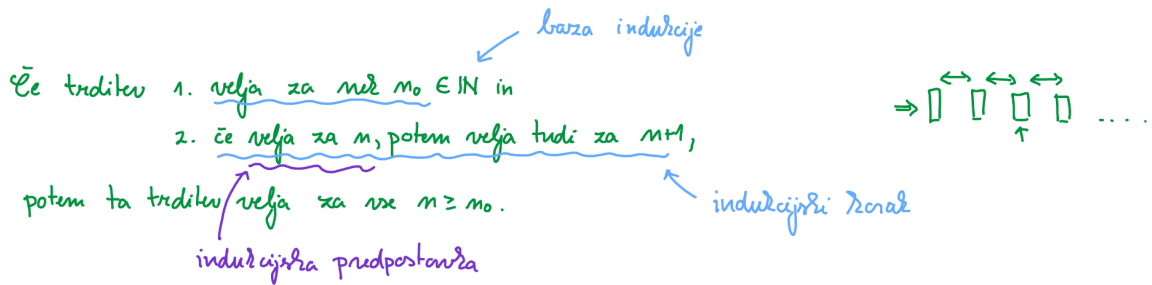 baza indukcije
Če trditev 1. velja za nek n₀ ∈ ℕ in
2. če velja za n, potem velja tudi za n+1,
potem ta trditev velja za vse n ≥ n₀.
indukcijski korak
indukcijska predpostavka